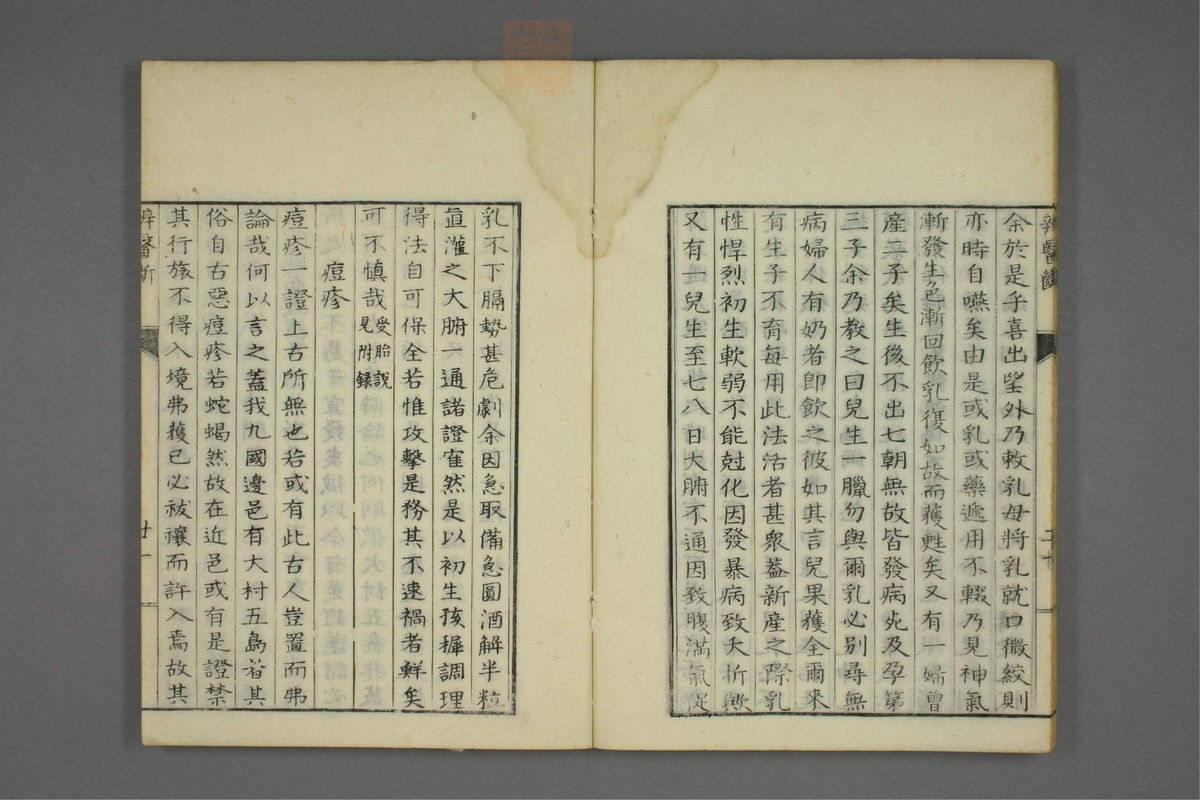 余於是乎喜出望外乃敕乳母將乳就口微絞則
亦時自嚥矣由是或乳或藥遞用不輟乃見神氣
漸發生色漸回飲乳復如故而獲甦矣又有一婦曾
產二子矣生後不出七朝無故皆發病死及孕第
三子余乃教之曰兒生一臘勿與爾乳必別尋無
病婦人有奶者即飲之彼如其言兒果獲全爾來
有生子不育每用此法活者甚衆蓋新產之際乳
性悍烈初生軟弱不能尅化因發暴病致夭折歟
又有一兒生至七八日大腑不通因致腹滿氣促
乳不下膈勢甚危劇余因急取備急圓酒解半粒
直灌之大腑一通諸證寉然是以初生孩穉調理
得法自可保全若惟攻擊是務其不速禍者鮮矣
可不慎哉受胎說見附録
痘疹
痘疹一證上古所無也若或有此古人豈置而弗
論哉何以言之蓋我九國邊邑有大村五島者其
俗自古惡痘疹若蛇蝎然故在近邑或有是證禁
其行旅不得入境弗獲已必祓禳而許入焉故其
辨醫斷
廿一